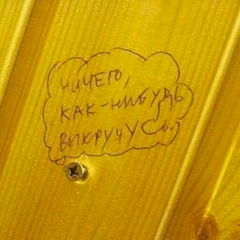 НИЧЕГО,
КАК-НИБУДЬ
ВЫКРУЧУСЬ